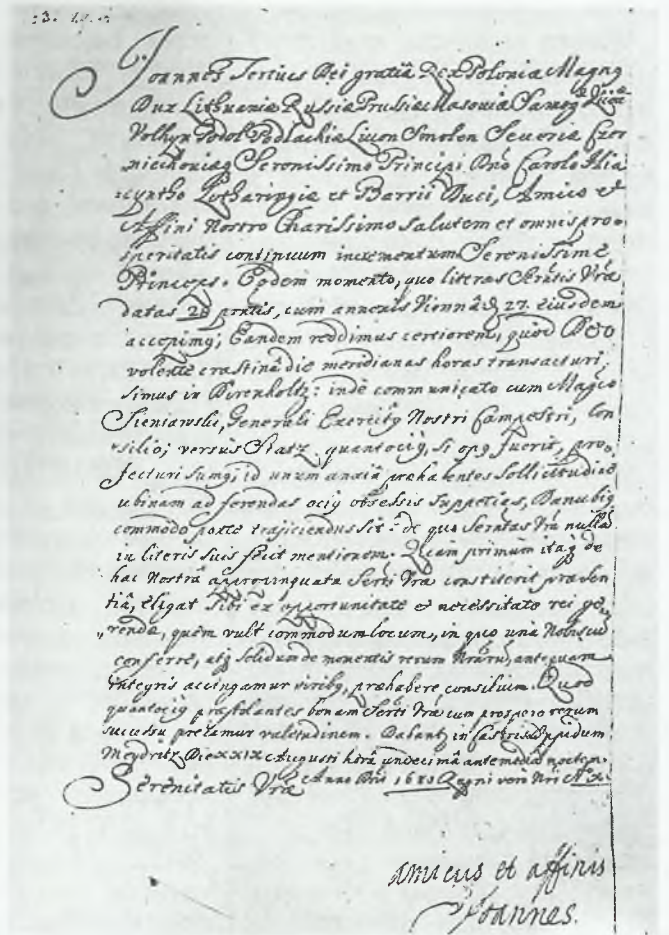 Joannes Tertius Dei gratiâ Rex Poloniæ Magnus
Dux Lithuaniæ Russiæ Prussiæ Masoviæ Samog
Volhyn Podol Podlachiæ Livon Smolen Severiæ Czer
niechoviæq Serenissimo Principi Dno Carolo Hia
cyntho Lotharingiæ et Barrii Duci, Amico et
Affini Nostro Charissimo salutem et omnis pro-
speritatis continuum incrementum Serenissime
Princeps. Eodem momento, quo literas Sertis Vræ
datas 26 prntis, cum annexis Viennâ 27. eiusdem
accepimq; Eandem reddimus certiorem, quod Deo
volente crastinâ die meridianas horas transacturi
simus in Birenholtz: inde communicato cum Magco
Sieniawski, Generali Exercitq Nostri Campestri, Con
silio; versus quantociq, si opq fuerit, pro-
fecturi sumq, id unum anxiâ præhabentes sollicitudine
ubinam ad ferendas ociq obsessis suppetias, Danubiq
commodo trajiciendus sit: de quo Sertas Vra nullâ
in literis suis fecit mentionem. Quam primum itaq de
hac Nostrâ appropinquatâ Serti Vræ constiterit præsen
tiâ, eligat Sibi ex opportunitate et necessitate rei ge-
rendæ, quem vult commodum locum, in quo unâ Nobiscu
conferre, atq solidum de momentis rerum Nrarû, antequam
integris accingamur viribq, præhabere consilium. Quod
quantociq præstolantes bonam Serti Vræ cum prospero rerum
successu precamur valetudinem. Dabant in Castris ad Oppidum
Meydritz Die XXIX Augusti horâ undecimâ ante mediâ noctem
Anno Dni 1683 Regni vero Nri X.
Serenitatis Vræ
amicus et affinis
Joannes.